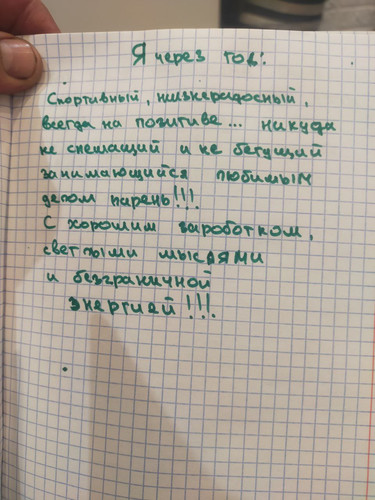 Я через год:
Спортивный, жизнерадосный,
всегда на позитиве... никуда
не спешащий и не бегущий
занимающийся любимым
делом парень!!!
С хорошим заработком,
светлыми мыслями
и безграничной
энергией!!!